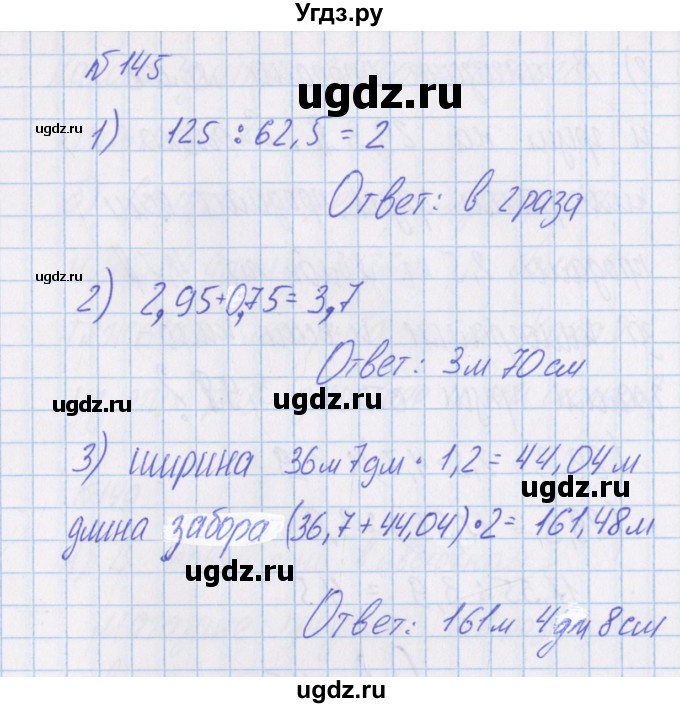 Угдз.ру
ugdz.ru
№145
ugdz.ru
1) 125 : 62,5 = 2
Ответ: в 2 раза
ugdz.ru
2) 2,95+0,75=3,7
Ответ: 3м 70см
ugdz.ru
ugdz.ru
3) ширина 36м7дм · 1,2 = 44,04м
ugdz.ru
длина забора (36,7+44,04)·2= 161,48м
ugdz.ru
Ответ: 161м 4дм 8см
ugdz.ru